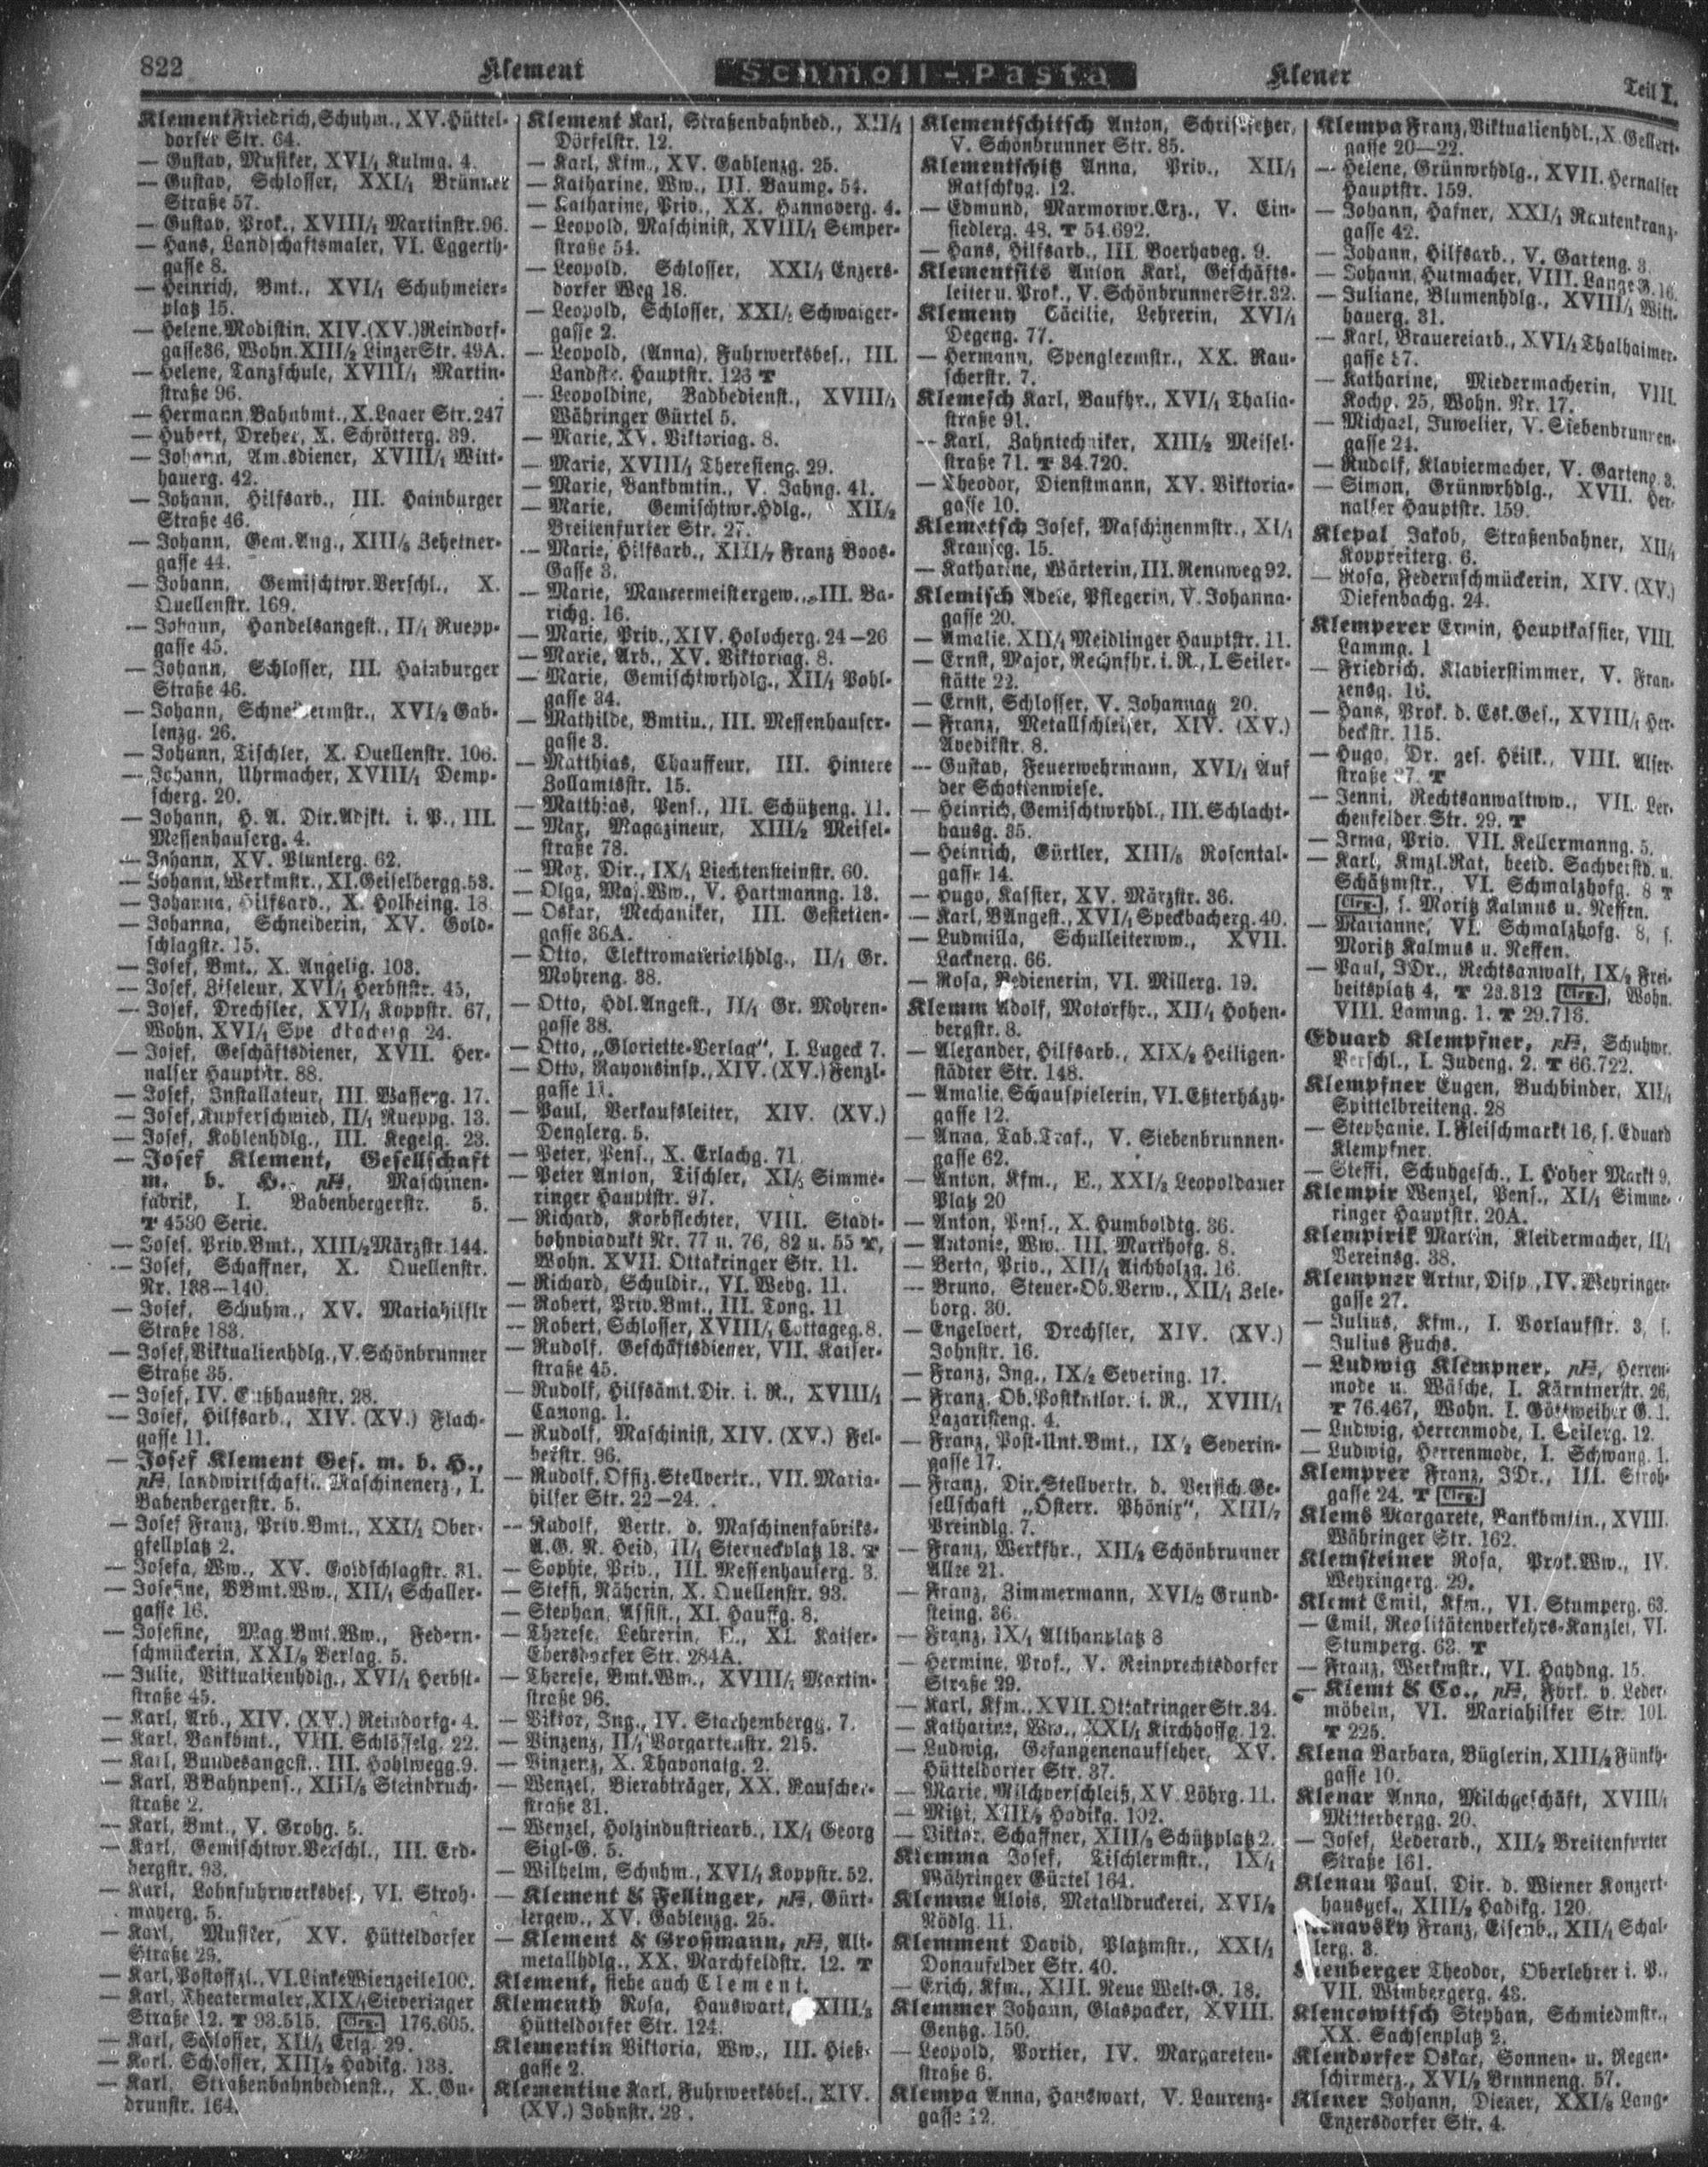 822
Klement
Schmoll-Pasta
Klener
Teil I.
Klement Friedrich, Schuhm., XV. Hüttel-
dorfer Str. 64.
— Gustav, Musiker, XVI/1 Kulmg. 4.
— Gustav, Schlosser, XXI/1 Brünner
Straße 57.
— Gustav, Prok., XVIII/1 Martinstr. 96.
— Hans, Landschaftsmaler, VI. Eggerth-
gasse 8.
— Heinrich, Bmt., XVI/1 Schuhmeier-
platz 15.
— Helene, Modistin, XIV. (XV.) Reindorf-
gasse 36, Wohn. XIII/2 Linzer Str. 49A.
— Helene, Tanzschule, XVIII/1 Martin-
straße 96.
— Hermann, Bahnbmt., X. Laaer Str. 247
— Hubert, Dreher, X. Schrötterg. 39.
— Johann, Amtsdiener, XVIII/1 Witt-
hauerg. 42.
— Johann, Hilfsarb., III. Hainburger
Straße 46.
— Johann, Gem. Ang., XIII/5 Zehetner-
gasse 44.
— Johann, Gemischtwr. Verschl., X.
Quellenstr. 169.
— Johann, Handelsangest., II/1 Ruepp-
gasse 45.
— Johann, Schlosser, III. Hainburger
Straße 46.
— Johann, Schneidermstr., XVI/2 Gab-
lenzg. 26.
— Johann, Tischler, X. Quellenstr. 106.
— Johann, Uhrmacher, XVIII/1 Demp-
scherg. 20.
— Johann, H. A. Dir. Adjkt. i. P., III.
Messenhauserg. 4.
— Johann, XV. Plunkerg. 62.
— Johann, Werkmstr., XI. Geiselbergg. 53.
— Johanna, Hilfsarb., X. Holbeing. 18.
— Johanna, Schneiderin, XV. Gold-
schlagstr. 15.
— Josef, Bmt., X. Angelig. 103.
— Josef, Ziseleur, XVI/1 Herbststr. 45,
— Josef, Drechsler, XVI/1 Koppstr. 67,
Wohn. XVI/1 24.
— Josef, Geschäftsdiener, XVII. Her-
nalser Hauptstr. 88.
— Josef, Installateur, III. Wasserg. 17.
— Josef, Kupferschmied, II/1 Rueppg. 13.
— Josef, Kohlenhdlg., III. Kegelg. 23.
— Josef Klement, Gesellschaft
m. b. H., pH, Maschinen-
fabrik, I. Babenbergerstr. 5.
T 4530 Serie.
— Josef, Priv. Bmt., XIII/2 Märzstr. 144.
— Josef, Schaffner, X. Quellenstr.
Nr. 138—140.
— Josef, Schuhm., XV. Mariahilfer
Straße 183.
— Josef, Viktualienhdlg., V. Schönbrunner
Straße 35.
— Josef, IV. Gußhausstr. 28.
— Josef, Hilfsarb., XIV. (XV.) Flach-
gasse 11.
— Josef Klement Ges. m. b. H.,
pH, landwirtschaftl. Maschinenerz., I.
Babenbergerstr. 5.
— Josef Franz, Priv. Bmt., XXI/1 Ober-
gfellplatz 2.
— Josefa, Ww., XV. Goldschlagstr. 31.
— Josefine, BBmt. Ww., XII/1 Schaller-
gasse 16.
— Josefine, Mag. Bmt. Ww., Federn-
schmückerin, XXI/8 Verlag. 5.
— Julie, Viktualienhdlg., XVI/1 Herbst-
straße 45.
— Karl, Arb., XIV. (XV.) Reindorfg. 4.
— Karl, Bankbmt., VIII. Schlösselg. 22.
— Karl, Bundesangest., III. Hohlwegg. 9.
— Karl, BBahnpens., XIII/5 Steinbruch-
straße 2.
— Karl, Bmt., V. Grohg. 5.
— Karl, Gemischtwr. Verschl., III. Erd-
bergstr. 93.
— Karl, Lohnfuhrwerksbes., VI. Stroh-
mayerg. 5.
— Karl, Musiker, XV. Hütteldorfer
Straße 29.
— Karl, Postoffzl., VI. Linke Wienzeile 100.
— Karl, Theatermaler, XIX/1 Sieveringer
Straße 12. T 93.515. Clrg. 176.605.
— Karl, Schlosser, XII/1 Erlg. 29.
— Karl, Schlosser, XIII/2 Hadikg. 138.
— Karl, Straßenbahnbedienst., X. Gu-
drunstr. 164.
Klement Karl, Straßenbahnbed., XII/1
Dörfelstr. 12.
— Karl, Kfm., XV. Gablenzg. 25.
— Katharine, Ww., III. Baumg. 54.
— Katharine, Priv., XX. Hannoverg. 4.
— Leopold, Maschinist, XVIII/1 Semper-
straße 54.
— Leopold, Schlosser, XXI/1 Enzers-
dorfer Weg 18.
— Leopold, Schlosser, XXI/2 Schwaiger-
gasse 2.
— Leopold, (Anna), Fuhrwerksbes., III.
Landstr. Hauptstr. 123 T
— Leopoldine, Badbedienst., XVIII/1
Währinger Gürtel 5.
— Marie, XV. Viktoriag. 8.
— Marie, XVIII/1 Theresieng. 29.
— Marie, Bankbmtin., V. Jahng. 41.
— Marie, Gemischtwr. Hdlg., XII/2
Breitenfurter Str. 27.
— Marie, Hilfsarb., XIII/7 Franz Boos-
Gasse 3.
— Marie, Maurermeistergew., III. Ba-
richg. 16.
— Marie, Priv., XIV. Holocherg. 24—26
— Marie, Arb., XV. Viktoriag. 8.
— Marie, Gemischtwrhdlg., XII/1 Pohl-
gasse 34.
— Mathilde, Bmtin., III. Messenhauser-
gasse 3.
— Matthias, Chauffeur, III. Hintere
Zollamtsstr. 15.
— Matthias, Pens., III. Schützeng. 11.
— Max, Magazineur, XIII/2 Meisel-
straße 78.
— Max, Dir., IX/1 Liechtensteinstr. 60.
— Olga, Maj. Ww., V. Hartmanng. 13.
— Oskar, Mechaniker, III. Gestetten-
gasse 36A.
— Otto, Elektromaterialhdlg., II/1 Gr.
Mohreng. 38.
— Otto, Hdl. Angest., II/1 Gr. Mohren-
gasse 38.
— Otto, „Gloriette-Verlag“, I. Lugeck 7.
— Otto, Rayonsinsp., XIV. (XV.) Fenzl-
gasse 11.
— Paul, Verkaufsleiter, XIV. (XV.)
Denglerg. 5.
— Peter, Pens., X. Erlachg. 71
— Peter Anton, Tischler, XI/5 Simme-
ringer Hauptstr. 97.
— Richard, Korbflechter, VIII. Stadt-
bahnviadukt Nr. 77 u. 76, 82 u. 55 T,
Wohn. XVII. Ottakringer Str. 11.
— Richard, Schuldir., VI. Webg. 11.
— Robert, Priv. Bmt., III. Tong. 11
— Robert, Schlosser, XVIII/1 Cottageg. 8.
— Rudolf, Geschäftsdiener, VII. Kaiser-
straße 45.
— Rudolf, Hilfsämt. Dir. i. R., XVIII/1
Canong. 1.
— Rudolf, Maschinist, XIV. (XV.) Fel-
berstr. 96.
— Rudolf, Offiz. Stellvertr., VII. Maria-
hilfer Str. 22—24.
— Rudolf, Vertr. d. Maschinenfabriks-
A. G. N. Heid, II/1 Sterneckplatz 13. T
— Sophie, Priv., III. Messenhauserg. 3.
— Steffi, Näherin, X. Quellenstr. 93.
— Stephan, Assist., XI. Hauffg. 8.
— Therese, Lehrerin, E., XI. Kaiser-
Ebersdorfer Str. 284A.
— Therese, Bmt. Ww., XVIII/1 Martin-
straße 96.
— Viktor, Ing., IV. Starhembergg. 7.
— Vinzenz, II/1 Vorgartenstr. 215.
— Vinzenz, X. Thavonatg. 2.
— Wenzel, Bierabträger, XX. Rauscher-
straße 31.
— Wenzel, Holzindustriearb., IX/1 Georg
Sigl-G. 5.
— Wilhelm, Schuhm., XVI/1 Koppstr. 52.
— Klement & Fellinger, pH, Gürt-
lergew., XV. Gablenzg. 25.
— Klement & Großmann, pH, Alt-
metallhdlg., XX. Marchfeldstr. 12. T
Klement, siehe auch Clement.
Klementh Rosa, Hauswart, XIII/5
Hütteldorfer Str. 124.
Klementin Viktoria, Ww., III. Hieß-
gasse 2.
Klementine Karl, Fuhrwerksbes., XIV.
(XV.) Johnstr. 29.
Klementschitsch Anton, Schriftsetzer,
V. Schönbrunner Str. 85.
Klementschitz Anna, Priv., XII/1
Ratschkyg. 12.
— Edmund, Marmorwr. Erz., V. Ein-
siedlerg. 48. T 54.692.
— Hans, Hilfsarb., III. Boerhaveg. 9.
Klementsits Anton Karl, Geschäfts-
leiter u. Prok., V. Schönbrunner Str. 32.
Klemeny Cäcilie, Lehrerin, XVI/1
Degeng. 77.
— Hermann, Spenglermstr., XX. Rau-
scherstr. 7.
Klemesch Karl, Baufhr., XVI/1 Thalia-
straße 91.
— Karl, Zahntechniker, XIII/2 Meisel-
straße 71. T 34.720.
— Theodor, Dienstmann, XV. Viktoria-
gasse 10.
Klemetsch Josef, Maschinenmstr., XI/1
Krauseg. 15.
— Katharine, Wärterin, III. Rennweg 92.
Klemisch Adele, Pflegerin, V. Johanna-
gasse 20.
— Amalie, XII/1 Meidlinger Hauptstr. 11.
— Ernst, Major, Rechnfhr. i. R., I. Seiler-
stätte 22.
— Ernst, Schlosser, V. Johannag 20.
— Franz, Metallschleifer, XIV. (XV.)
Avedikstr. 8.
— Gustav, Feuerwehrmann, XVI/1 Auf
der Schottenwiese.
— Heinrich, Gemischtwrhdl., III. Schlacht-
hausg. 35.
— Heinrich, Gürtler, XIII/8 Rosental-
gasse 14.
— Hugo, Kassier, XV. Märzstr. 36.
— Karl, BAngest., XVI/1 Speckbacherg. 40.
— Ludmilla, Schulleiterww., XVII.
Lacknerg. 66.
— Rosa, Bedienerin, VI. Millerg. 19.
Klemm Adolf, Motorfhr., XII/1 Hohen-
bergstr. 8.
— Alexander, Hilfsarb., XIX/2 Heiligen-
städter Str. 148.
— Amalie, Schauspielerin, VI. Eßterházy-
gasse 12.
— Anna, Tab. Traf., V. Siebenbrunnen-
gasse 62.
— Anton, Kfm., E., XXI/8 Leopoldauer
Platz 20
— Anton, Pens., X. Humboldtg. 36.
— Antonie, Ww., III. Marxhofg. 8.
— Berta, Priv., XII/1 Aichholzg. 16.
— Bruno, Steuer-Ob. Verw., XII/1 Zele-
borg. 30.
— Engelbert, Drechsler, XIV. (XV.)
Johnstr. 16.
— Franz, Ing., IX/2 Severing. 17.
— Franz, Ob. Postkntlor. i. R., XVIII/1
Lazaristeng. 4.
— Franz, Post-Unt. Bmt., IX/2 Severin-
gasse 17.
— Franz, Dir. Stellvertr. d. Versich. Ge-
sellschaft „Österr. Phönix“, XIII/7
Preindlg. 7.
— Franz, Werkfhr., XII/2 Schönbrunner
Allee 21.
— Franz, Zimmermann, XVI/2 Grund-
steing. 36.
— Franz, IX/1 Althanplatz 8
— Hermine, Prof., V. Reinprechtsdorfer
Straße 29.
— Karl, Kfm., XVII. Ottakringer Str. 34.
— Katharine, Ww., XXI/1 Kirchhoffg. 12.
— Ludwig, Gefangenenaufseher, XV.
Hütteldorfer Str. 37.
— Marie, Milchverschleiß, XV. Löhrg. 11.
— Mitzi, XIII/2 Hadikg. 102.
— Viktor, Schaffner, XIII/5 Schützplatz 2.
Klemma Josef, Tischlermstr., IX/1
Währinger Gürtel 164.
Klemme Alois, Metalldruckerei, XVI/2
Nödlg. 11.
Klemment David, Platzmstr., XXI/1
Donaufelder Str. 40.
— Erich, Kfm., XIII. Neue Welt-G. 18.
Klemmer Johann, Glaspacker, XVIII.
Gentzg. 150.
— Leopold, Portier, IV. Margareten-
straße 6.
Klempa Anna, Hauswart, V. Laurenz-
gasse 12.
Klempa Franz, Viktualienhdl., X. Gellert-
gasse 20—22.
— Helene, Grünwrhdlg., XVII. Hernalser
Hauptstr. 159.
— Johann, Hafner, XXI/1 Rautenkranz-
gasse 42.
— Johann, Hilfsarb., V. Garteng. 3.
— Johann, Hutmacher, VIII. Lange G. 16.
— Juliane, Blumenhdlg., XVIII/1 Witt-
hauerg. 31.
— Karl, Brauereiarb., XVI/2 Thalhaimer-
gasse 37.
— Katharine, Miedermacherin, VIII.
Kochg. 25, Wohn. Nr. 17.
— Michael, Juwelier, V. Siebenbrunnen-
gasse 24.
— Rudolf, Klaviermacher, V. Garteng. 3.
— Simon, Grünwrhdlg., XVII. Her-
nalser Hauptstr. 159.
Klepal Jakob, Straßenbahner, XII/1
Koppreiterg. 6.
— Rosa, Federnschmückerin, XIV. (XV.)
Diefenbachg. 24.
Klemperer Erwin, Hauptkassier, VIII.
Lammg. 1
— Friedrich, Klavierstimmer, V. Fran-
zensg. 16.
— Hans, Prok. d. Esk. Ges., XVIII/1 Her-
beckstr. 115.
— Hugo, Dr. ges. Heilk., VIII. Alser-
straße 27. T
— Jenni, Rechtsanwaltww., VII. Ler-
chenfelder Str. 29. T
— Irma, Priv. VII. Kellermanng. 5.
— Karl, Kmzl. Rat, beeid. Sachverstd. u.
Schätzmstr., VI. Schmalzhofg. 8 T
Clrg., s. Moritz Kalmus u. Neffen.
— Marianne, VI. Schmalzhofg. 8, s.
Moritz Kalmus u. Neffen.
— Paul, JDr., Rechtsanwalt, IX/2 Frei-
heitsplatz 4, T 23.312 Clrg., Wohn.
VIII. Lammg. 1. T 29.718.
Eduard Klempfner, pH, Schuhwr.
Verschl., I. Judeng. 2. T 66.722.
Klempfner Eugen, Buchbinder, XII/1
Spittelbreiteng. 28
— Stephanie, I. Fleischmarkt 16, s. Eduard
Klempfner.
— Steffi, Schuhgesch., I. Hoher Markt 9.
Klempir Wenzel, Pens., XI/1 Simme-
ringer Hauptstr. 20A.
Klempirik Martin, Kleidermacher, II/1
Vereinsg. 38.
Klempner Artur, Disp., IV. Weyringer-
gasse 27.
— Julius, Kfm., I. Vorlaufstr. 3, s.
Julius Fuchs.
— Ludwig Klempner, pH, Herren-
mode u. Wäsche, I. Kärntnerstr. 26,
T 76.467, Wohn. I. Göttweiher G. 1.
— Ludwig, Herrenmode, I. Seilerg. 12.
— Ludwig, Herrenmode, I. Schwang. 1.
Klemprer Franz, JDr., III. Stroh-
gasse 24. T Clrg.
Klems Margarete, Bankbmtin., XVIII.
Währinger Str. 162.
Klemsteiner Rosa, Prok. Ww., IV.
Weyringerg. 29.
Klemt Emil, Kfm., VI. Stumperg. 63.
— Emil, Realitätenverkehrs-Kanzlei, VI.
Stumperg. 63. T
— Franz, Werkmstr., VI. Haydng. 15.
— Klemt & Co., pH, Fbrk. v. Leder-
möbeln, VI. Mariahilfer Str. 101.
T 225.
Klena Barbara, Büglerin, XIII/2 Fünkh-
gasse 10.
Klenar Anna, Milchgeschäft, XVIII/1
Mitterbergg. 20.
— Josef, Lederarb., XII/2 Breitenfurter
Straße 161.
Klenau Paul, Dir. d. Wiener Konzert-
hausges., XIII/2 Hadikg. 120.
Klenavsky Franz, Eisenb., XII/1 Schal-
lerg. 3.
Klenberger Theodor, Oberlehrer i. P.,
VII. Wimbergerg. 43.
Klencowitsch Stephan, Schmiedmstr.,
XX. Sachsenplatz 2.
Klendorfer Oskar, Sonnen- u. Regen-
schirmerz., XVI/2 Brunneng. 57.
Klener Johann, Diener, XXI/8 Lang-
Enzersdorfer Str. 4.